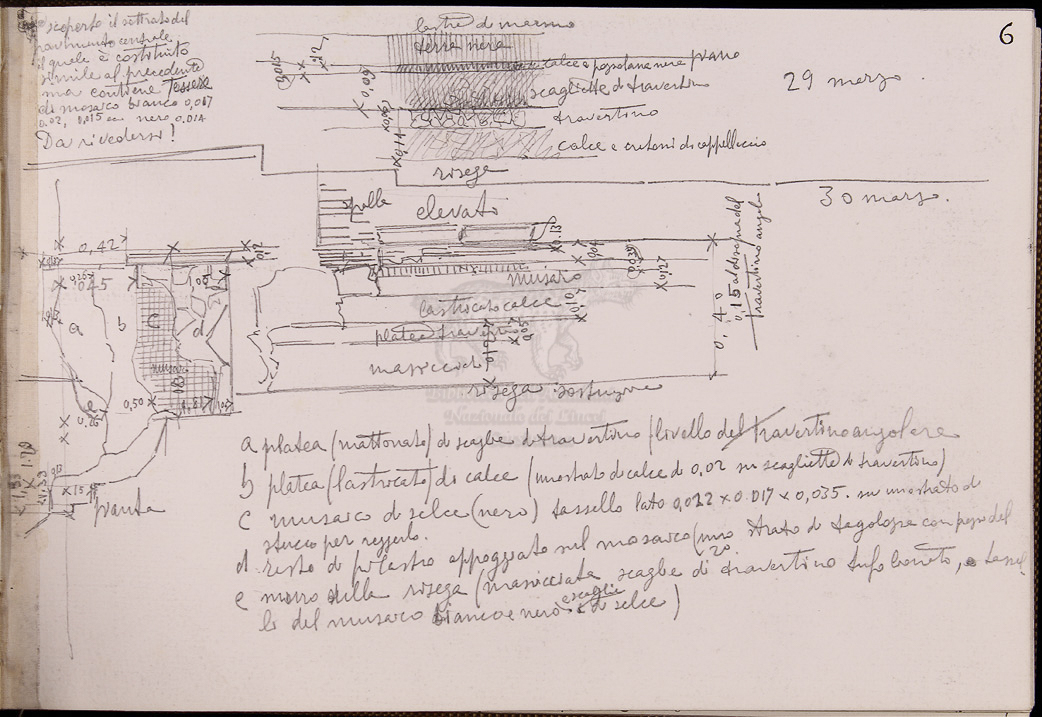 6
scoperto il sottrato del
pavimento centrale
il quale è costituito
simile al precedente
ma contiene tessere
di mosaico bianco 0,017
0.02, 0,015 nero 0.014
Da rivedersi!
lastre di marmo
terra nera
calce e pozzolana nera piano
scagliette di travertino
travertino
calce e cretoni di cappellaccio
risega
0,015
29 marzo
30 marzo.
spalla
elevato
musaico
lastricato calce
platea travertino
massicciata
risega sostruzione
0,13
0,04
0,039
0,127
0,107
0,05
0,40
0,15 al disopra del
travertino angolo
0,42
0,45
a
b
c
d
e
musaico
0,50
0,26
pianta
a platea (mattonato) di scaglie di travertino (livello del travertino angolare
b platea (lastricato) di calce (unostrato di calce di 0,02 su scagliette di travertino)
c musaico di selce (nero) tassello lato 0,022 x 0.017 x 0,035. su uno strato di
stucco per reggerlo.
d resto di pilastro appoggiato sul mosaico (uno strato di tegolozza con pezzo del
20.
e muro della risega (massicciata scaglie di travertino tufo bonito, e tassel
li del musaico bianco e nero e scaglie di selce)
Nazionale dei Lincei